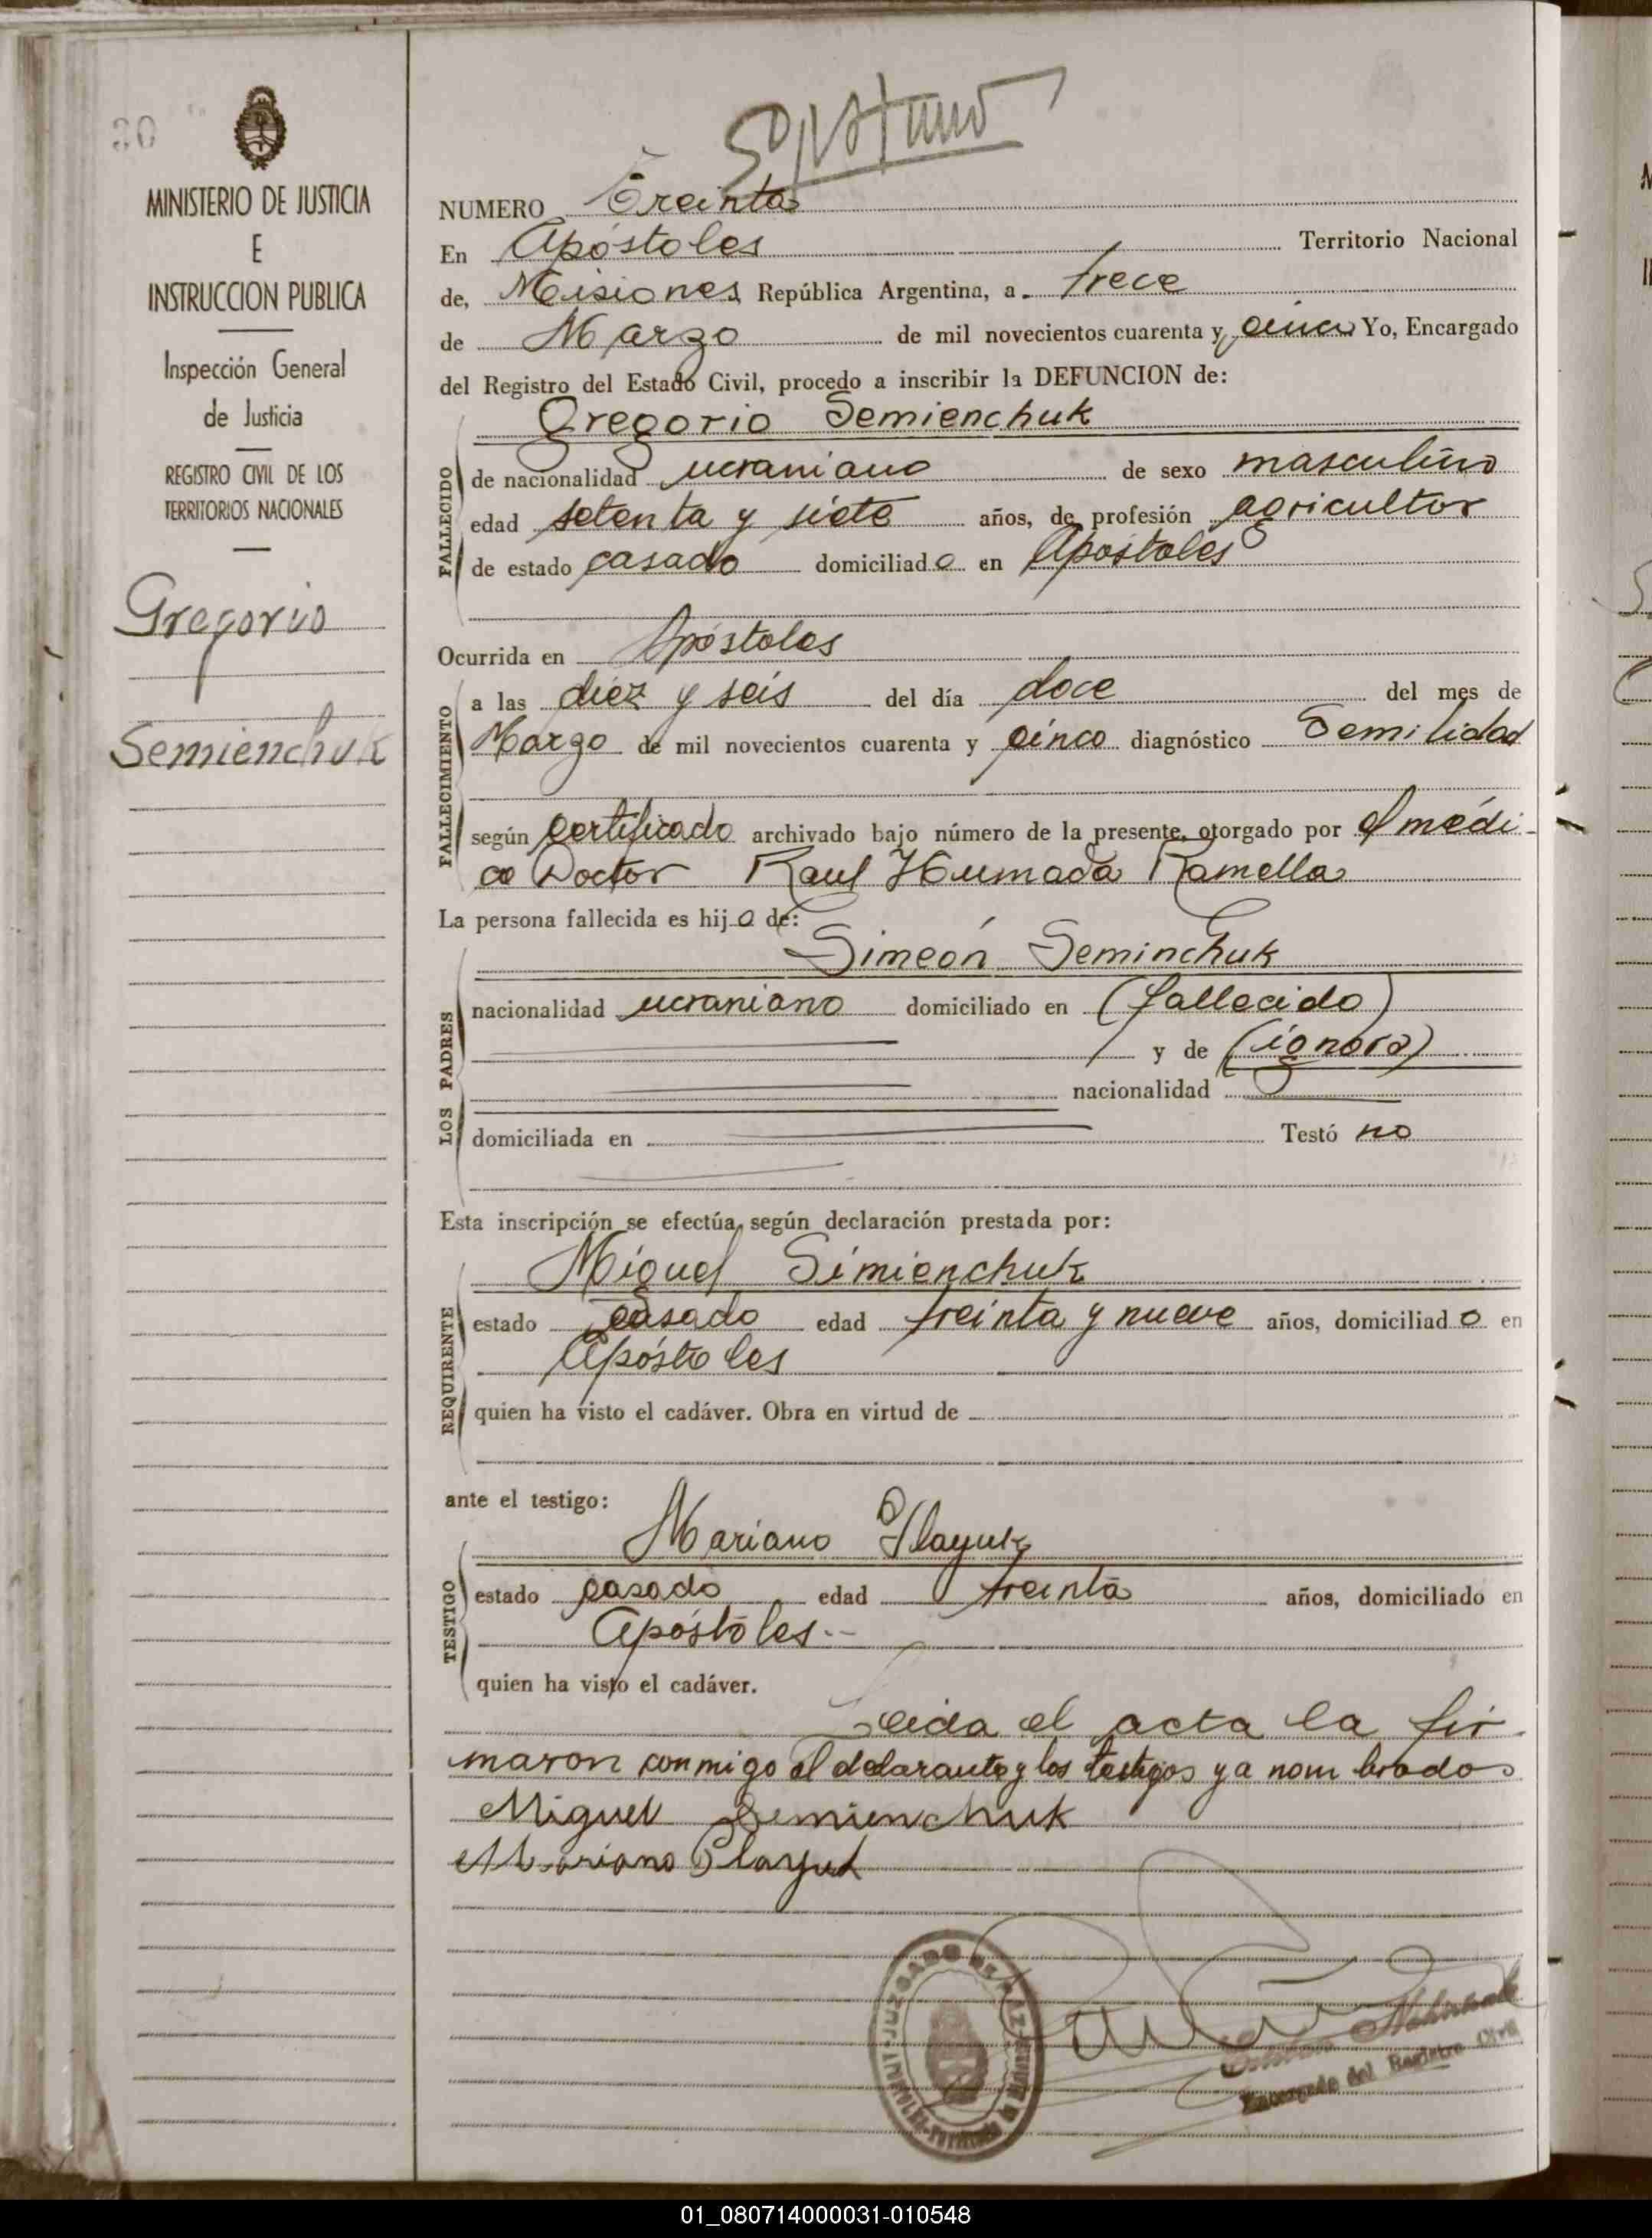 30
MINISTERIO DE JUSTICIA
E
INSTRUCCION PUBLICA
Inspección General
de Justicia
REGISTRO CIVIL DE LOS
TERRITORIOS NACIONALES
Gregorio
Semienchuk
NUMERO Treinta
En Apóstoles Territorio Nacional
de, Misiones República Argentina, a trece
de Marzo de mil novecientos cuarenta y cinco Yo, Encargado
del Registro del Estado Civil, procedo a inscribir la DEFUNCION de:
Gregorio Semienchuk
FALLECIDO
de nacionalidad ucraniano de sexo masculino
edad setenta y siete años, de profesión agricultor
de estado casado domiciliado en Apóstoles
Ocurrida en Apóstoles
FALLECIMIENTO
a las diez y seis del día doce del mes de
Marzo de mil novecientos cuarenta y cinco diagnóstico Semilidad
según certificado archivado bajo número de la presente, otorgado por el médi-
co Doctor Raul Humada Ramella
La persona fallecida es hijo de:
Simeón Seminchuk
LOS PADRES
nacionalidad ucraniano domiciliado en (fallecido)
y de (ignora)
nacionalidad
domiciliada en Testó no
Esta inscripción se efectúa, según declaración prestada por:
Miguel Simienchuk
REQUIRENTE
estado casado edad treinta y nueve años, domiciliado en
Apóstoles
quien ha visto el cadáver. Obra en virtud de
ante el testigo:
Mariano
TESTIGO
estado casado edad treinta años, domiciliado en
Apóstoles.--
quien ha visto el cadáver.
Leida el acta la fir-
maron conmigo el declarante y los testigos ya nombrados
Miguel Semienchuk
Mariano
JUZGADO DE PAZ
Encargado del Registro Civil
01_080714000031-010548